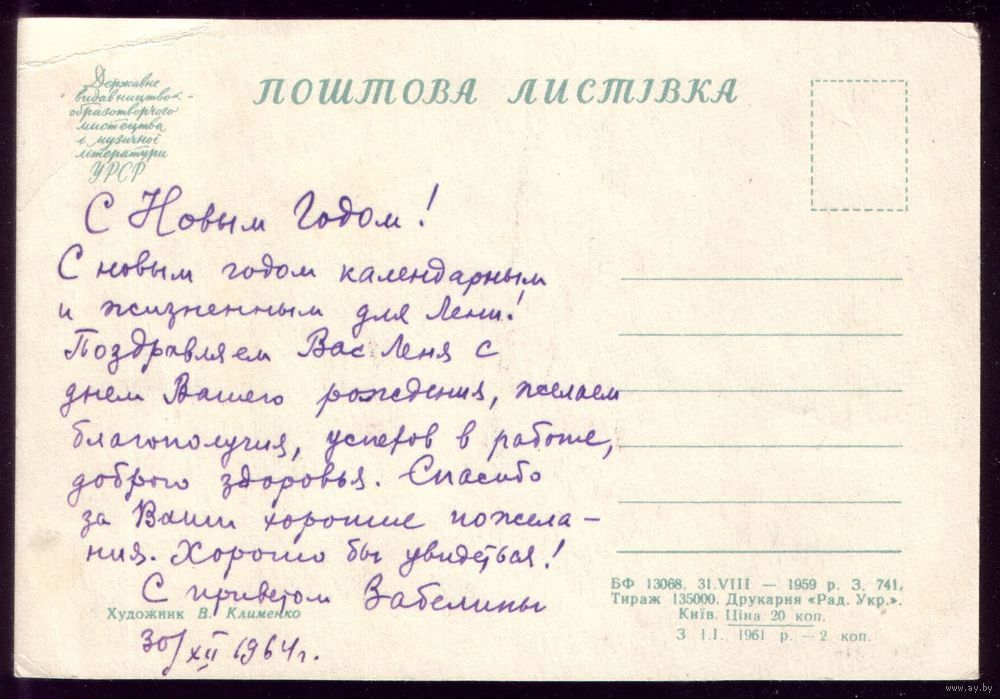 Державне
видавництво
образотворчого
мистецтва
і музичної
літератури
УРСР
ПОШТОВА ЛИСТІВКА
С Новым Годом!
С новым годом календарным
и жизненным для Лени!
Поздравляем Вас Леня с
днем Вашего рождения, желаем
благополучия, успехов в работе,
доброго здоровья. Спасибо
за Ваши хорошие пожела-
ния. Хорошо бы увидеться!
С приветом Забелины
Художник В. Клименко
30/XII 1964г.
БФ 13068. 31.VIII — 1959 р. З. 741.
Тираж 135000. Друкарня «Рад. Укр.».
Київ. Ціна 20 коп.
З 1.I. 1961 р. — 2 коп.
www.ay.by